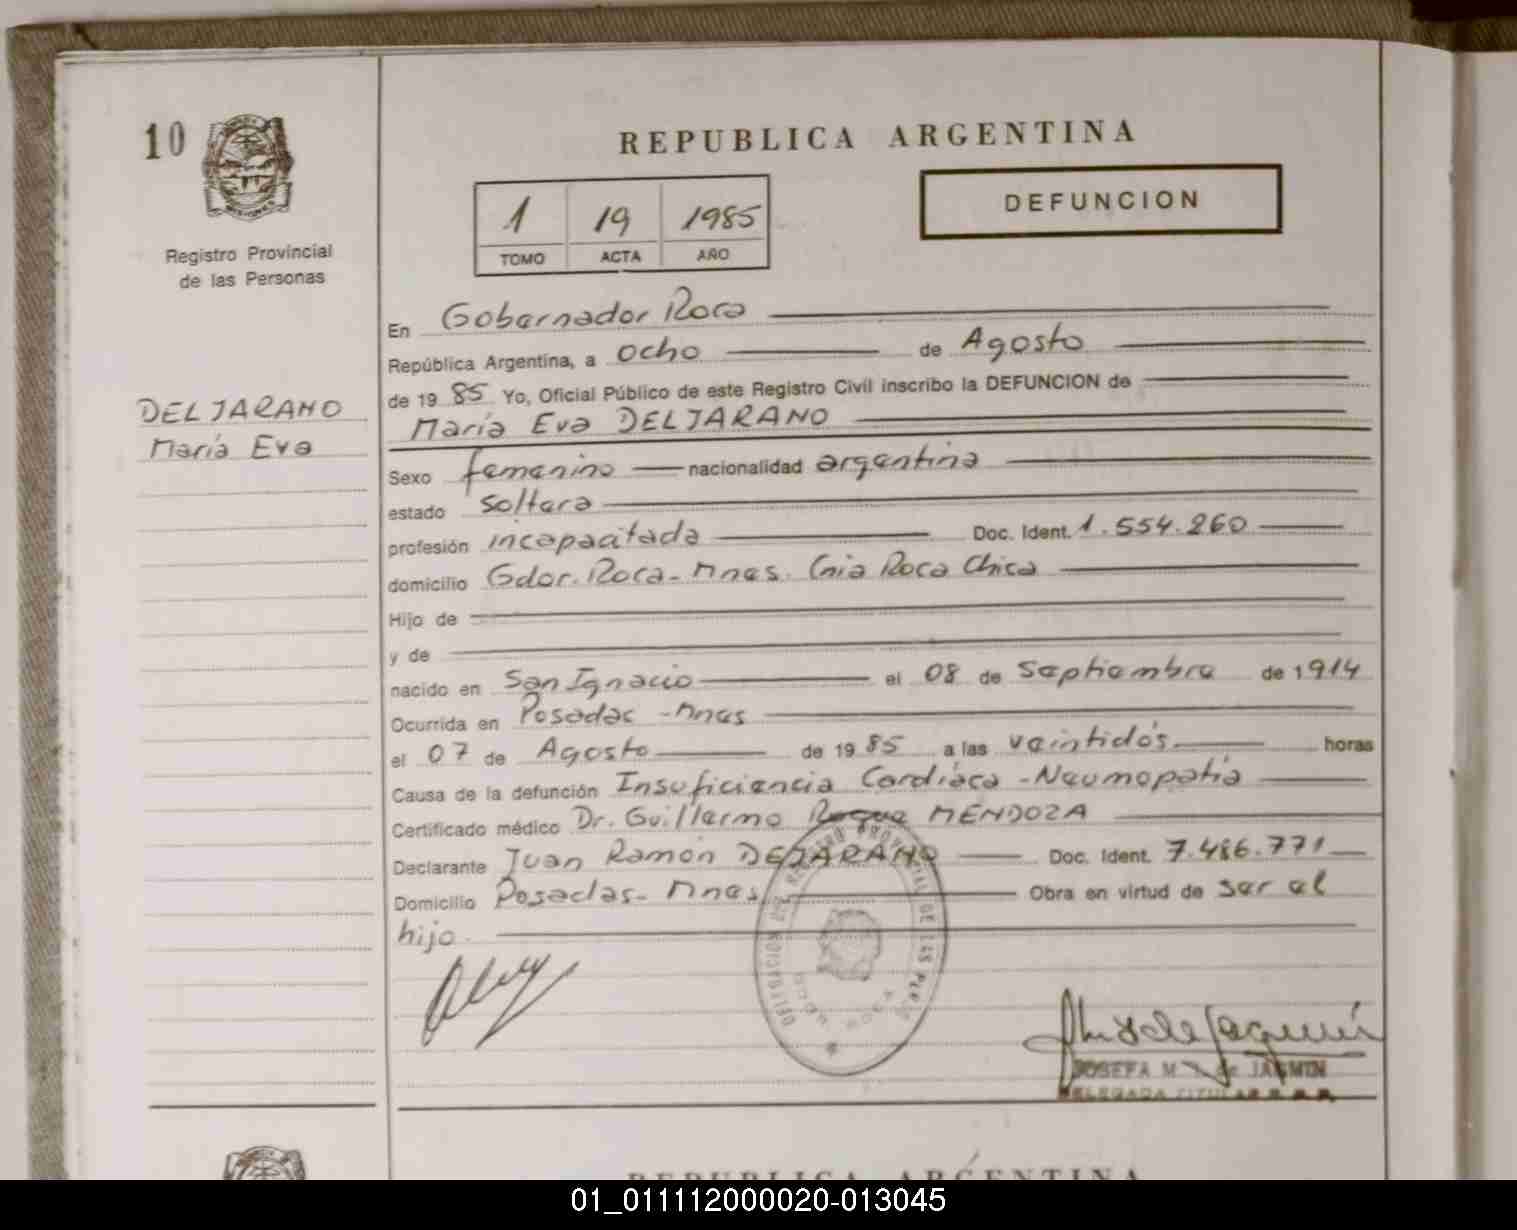 10
REPUBLICA ARGENTINA
DEFUNCION
1 19 1985
TOMO ACTA AÑO
Registro Provincial
de las Personas
MISIONES
En Gobernador Roca
República Argentina, a ocho de Agosto
de 19 85 Yo, Oficial Público de este Registro Civil inscribo la DEFUNCION de
María Eva DELJARANO
DELJARANO
María Eva
Sexo femenino nacionalidad argentina
estado soltera
profesión incapacitada Doc. Ident. 1.554.260
domicilio Gdor. Roca - Mnes. Cnia Roca Chica
Hijo de
y de
nacido en San Ignacio el 08 de Septiembre de 1914
Ocurrida en Posadas - Mnes
el 07 de Agosto de 19 85 a las veintidós horas
Causa de la defunción Insuficiencia Cardíaca - Neumopatía
Certificado médico Dr. Guillermo Roque MENDOZA
Declarante Juan Ramón DEJARANO Doc. Ident. 7.486.771
Domicilio Posadas - Mnes. Obra en virtud de ser el
hijo.
DELEGACION DEL REGISTRO PROVINCIAL DE LAS PERS
ROCA
JOSEFA M. de JASMIN
DELEGADA TITULAR
REPUBLICA ARGENTINA
01_011112000020-013045